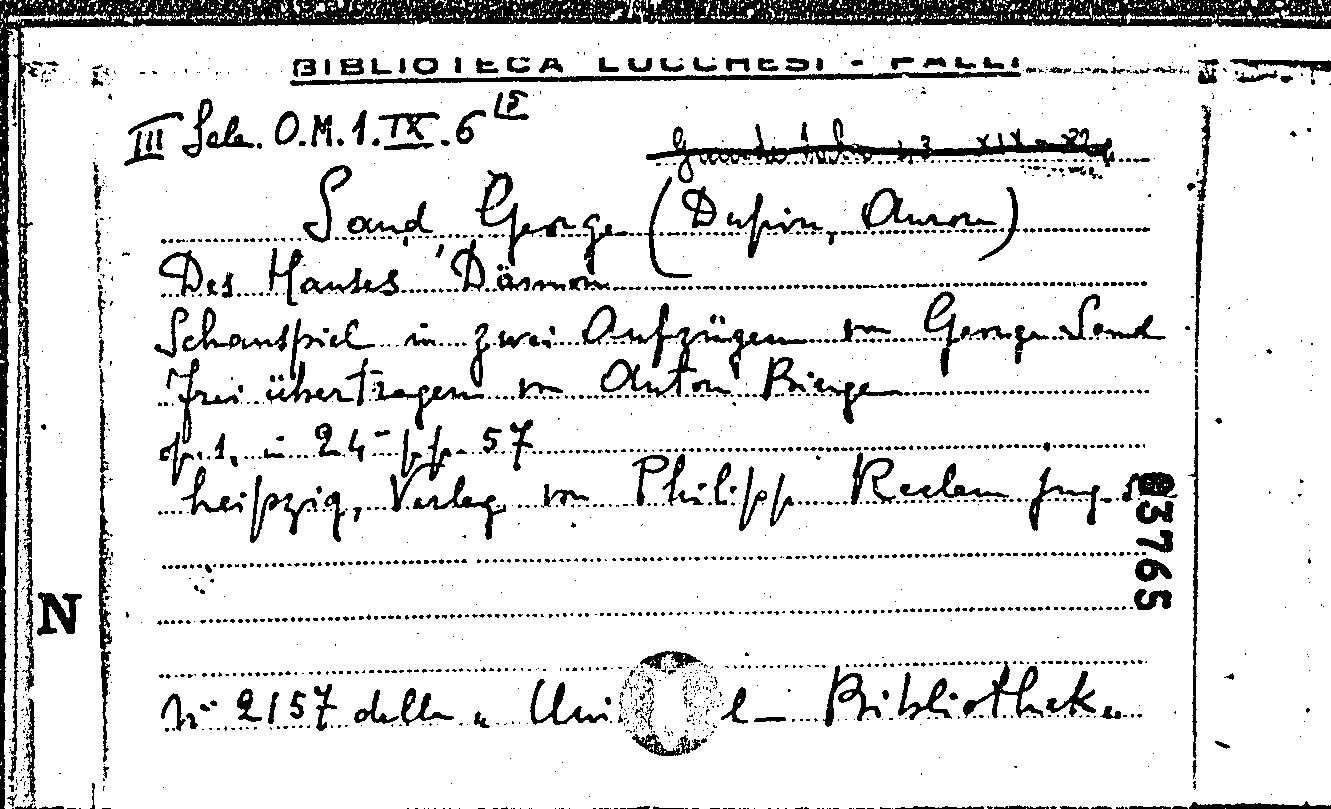 BIBLIOTECA LUCCHESI - PALLI
III Sala. O.M.1.IX.6 15
Sand George (Dupin, Aurore)
Des Hauses Dämon
Schauspiel in zwei Aufzügen von George Sand
frei übertragen von Anton Bing
op. 1, in 24- pp. 57
Leipzig, Verlag von Philipp Reclam jung. s.
03765
N
N° 2157 della " Uni l- Bibliothek "